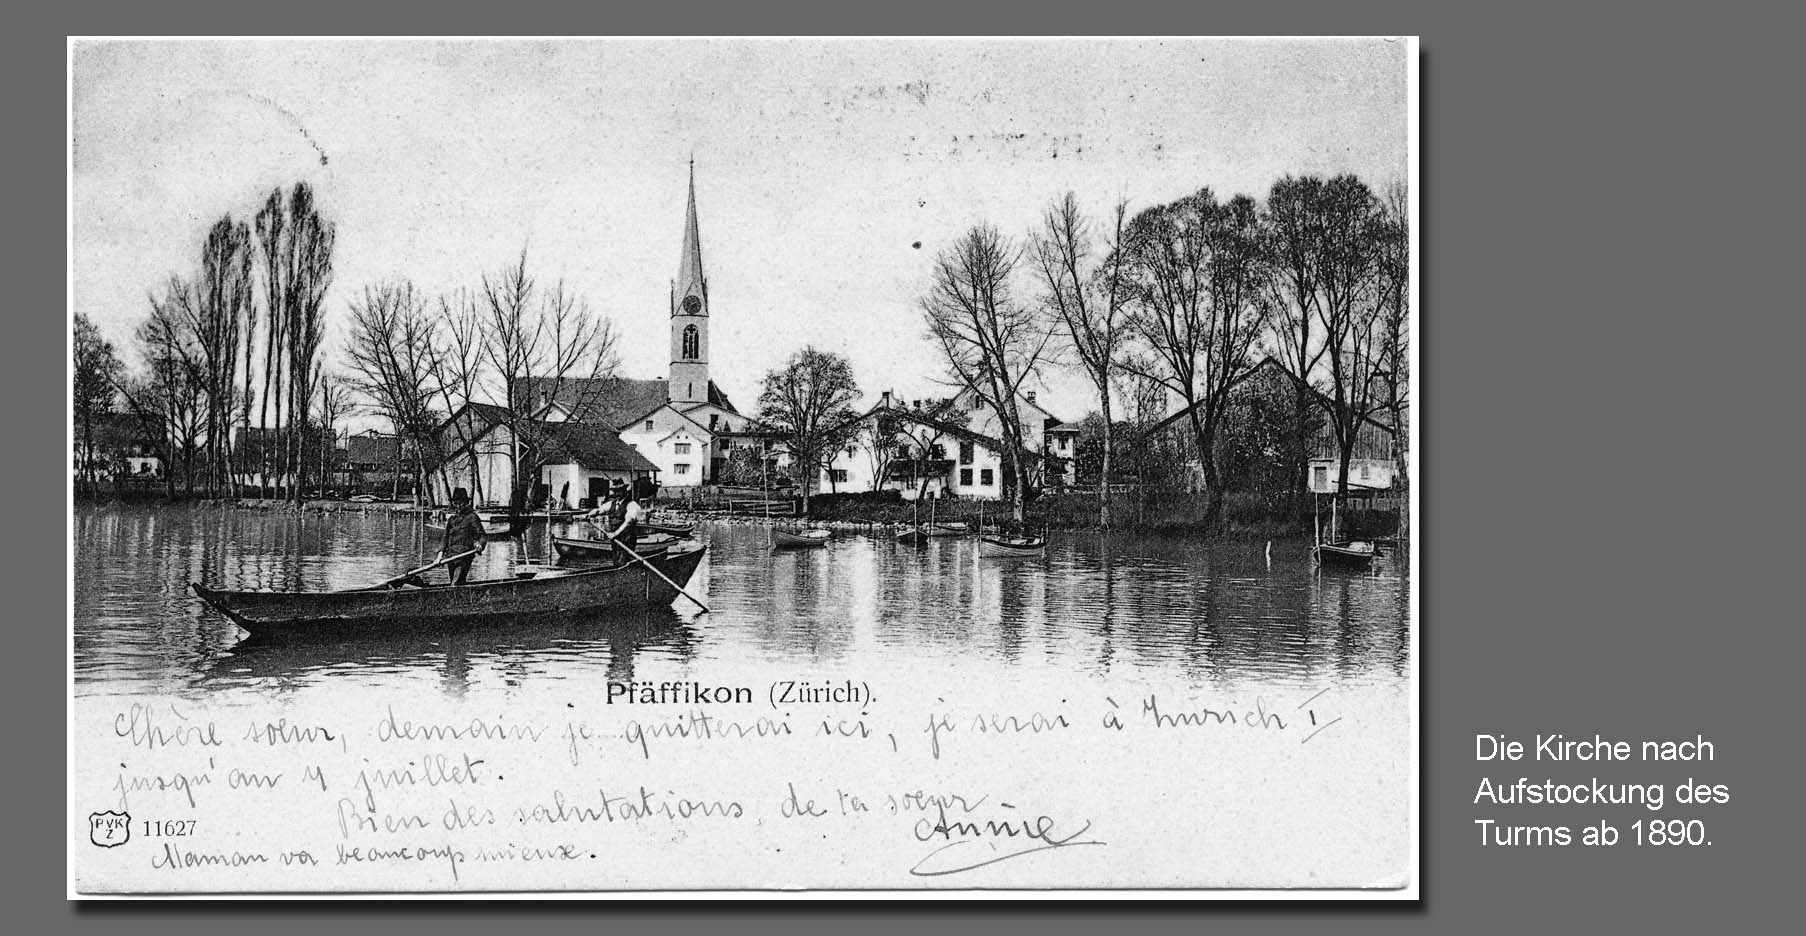 Pfäffikon (Zürich).
Chère soeur, demain je quitterai ici, je serai à Zurich I
jusqu'au 4 juillet.
Bien des salutations, de ta soeur
Annie
PVK
Z
11627
Maman va beaucoup mieux.
Die Kirche nach
Aufstockung des
Turms ab 1890.